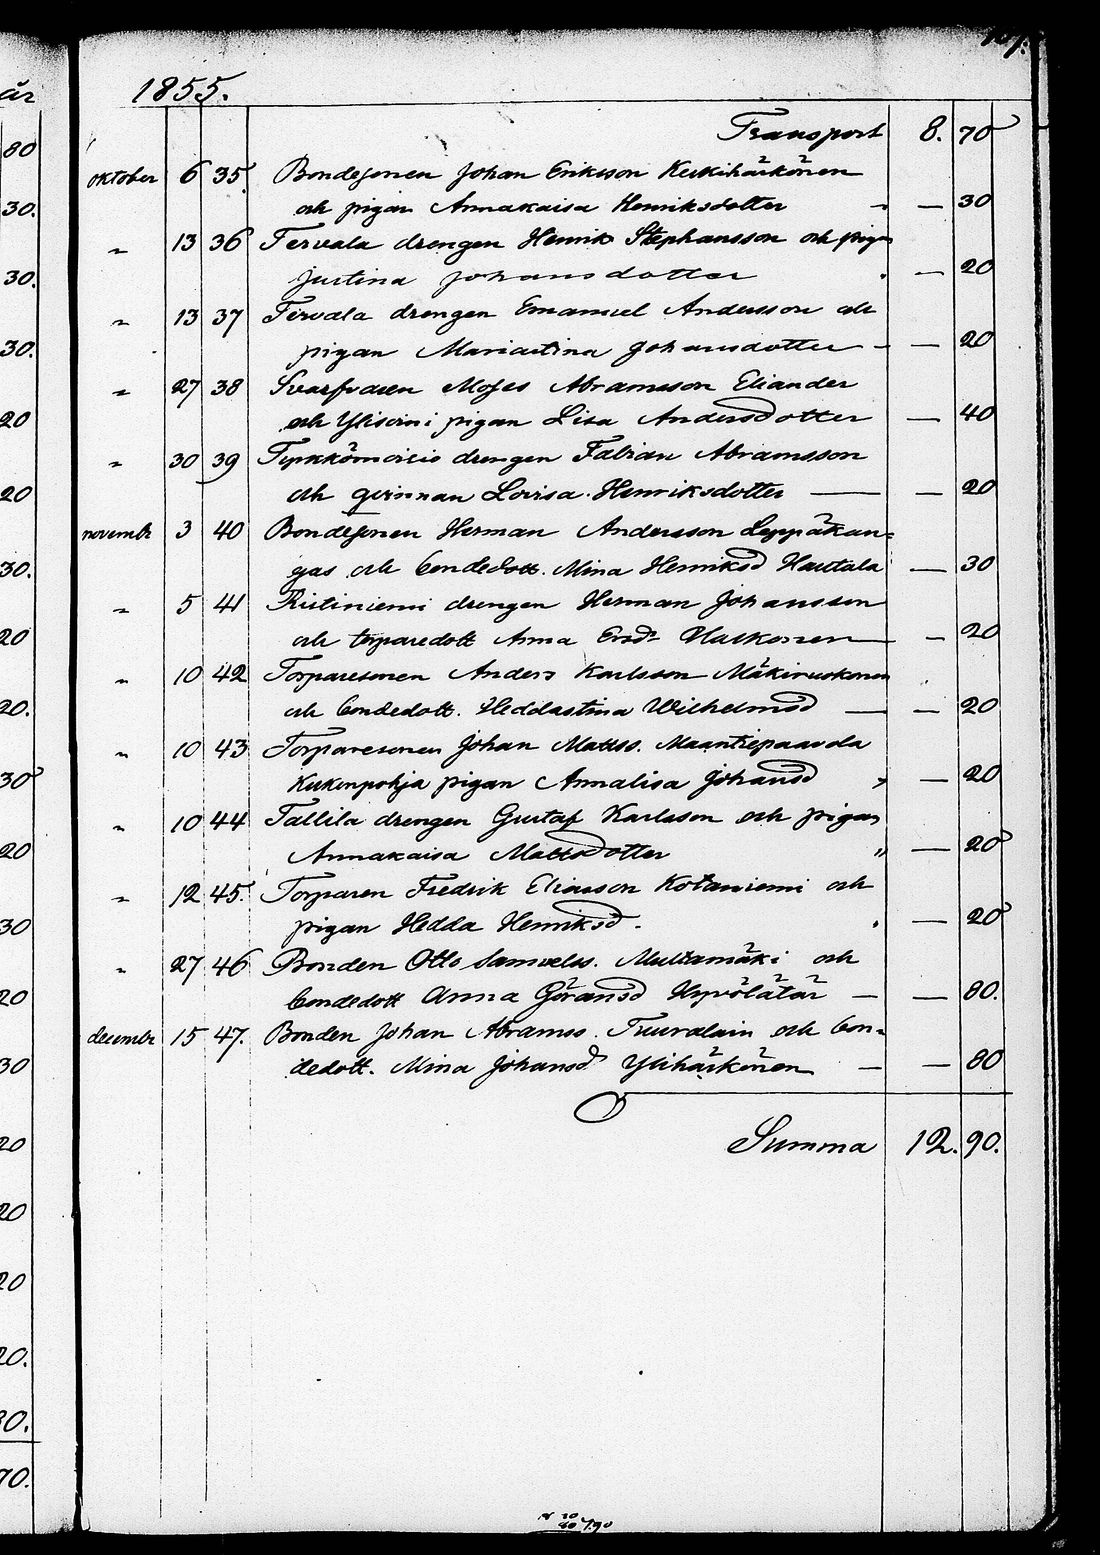 1855.
Transport 8. 70
oktober 6 35. Bondesonen Johan Eriksson Keskihärkönen
och pigan Annakaisa Henriksdotter - — 30
" 13 36 Tervala drengen Henrik Stephansson och pigan
Justina Johansdotter — 20
" 13 37 Tervala drengen Emanuel Andersson och
pigan Mariastina Johansdotter - — 20
" 27 38 Svarfvaren Moses Abramsson Eliander
och Ylisoini pigan Lisa Andersdotter — 40
" 30 39 drengen Fabian Abramsson
och qvinnan Lovisa Henriksdotter — — 20
november 3 40 Bondesonen Herman Andersson Leppäkan=
gas och bondedott. Mina Henriksd Hautala — 30
" 5 41 Ristiniemi drengen Herman Johansson
och torparedott Anna — 20
" 10 42 Torparesonen Anders Karlsson
och bondedott. Heddastina Wilhelmsd — — 20
" 10 43 Torparesonen Johan Matts. Maantiepaavola
pigan Annalisa Johansd " — 20
" 10 44 Tallila drengen Gustaf Karlsson och pigan
Annakaisa Mattsdotter " — 20
" 12 45. Torparen Fredrik Eliasson Kotaniemi och
pigan Hedda Henriksd. — 20
" 27 46 Bonden Otto Samuelss. Multamäki och
bondedott Anna Göransd — — 80.
december 15 47. Bonden Johan Abramss. och bon=
dedott. Mina Johansd Ylihärkönen — — 80
Summa 12. 90.